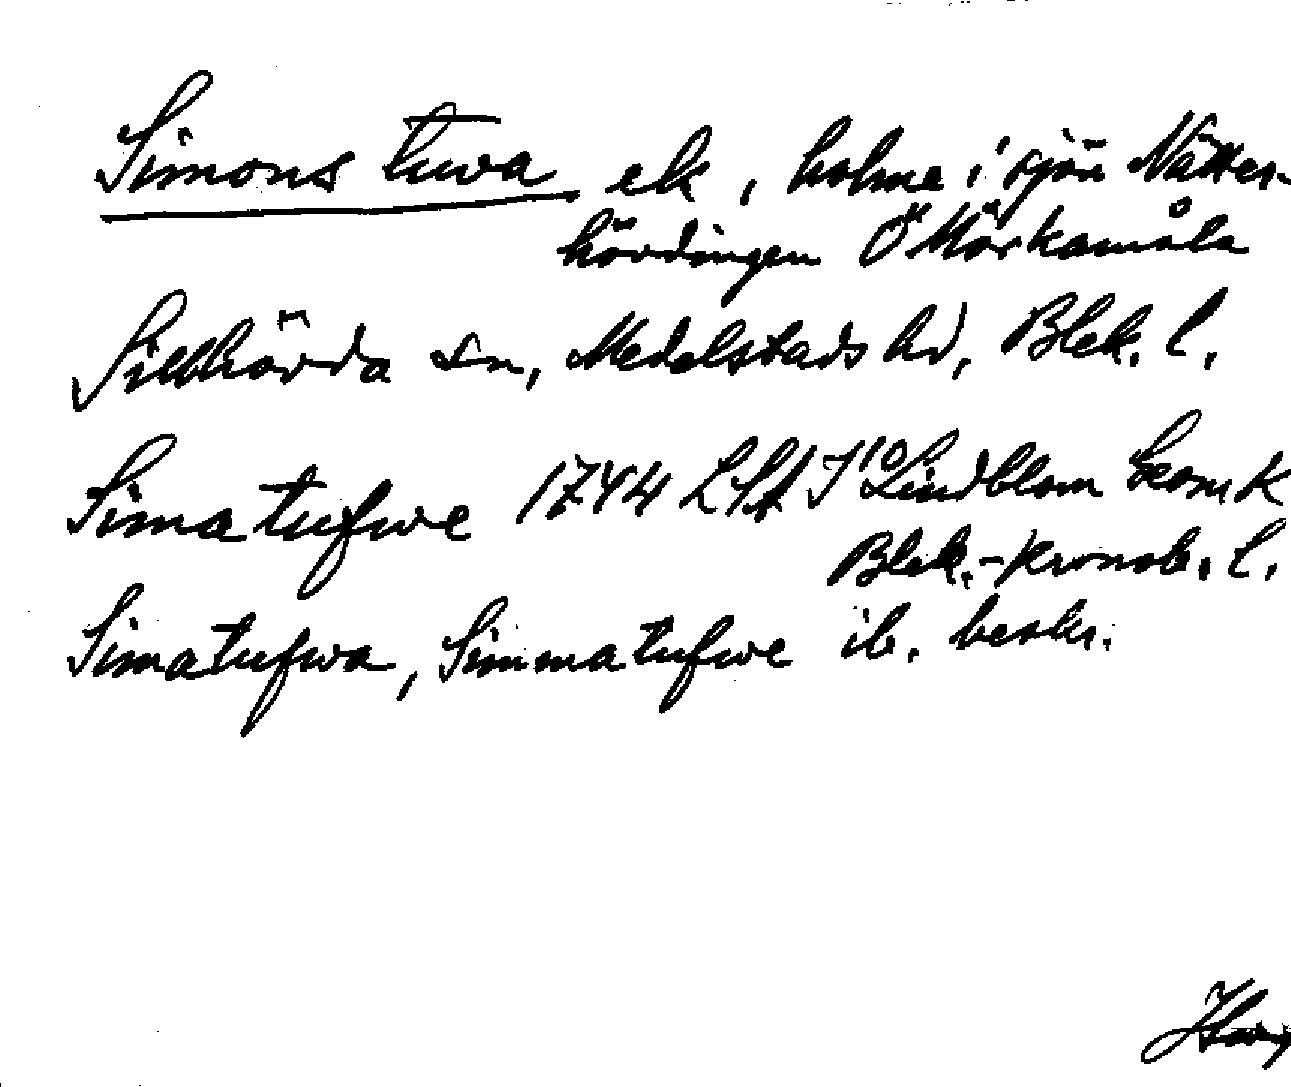 Simons tuva ek, holme i sjön Nätter-
hövdingen Ö Mörkamåla
Sillhövda sn, Medelstads hd, Blek. l.
Simatufwe 1744 LSA J10 Lindblom Geom K
Blek.-Kronob. l.
Simatufwa, Simmatufwe ib. beskr.